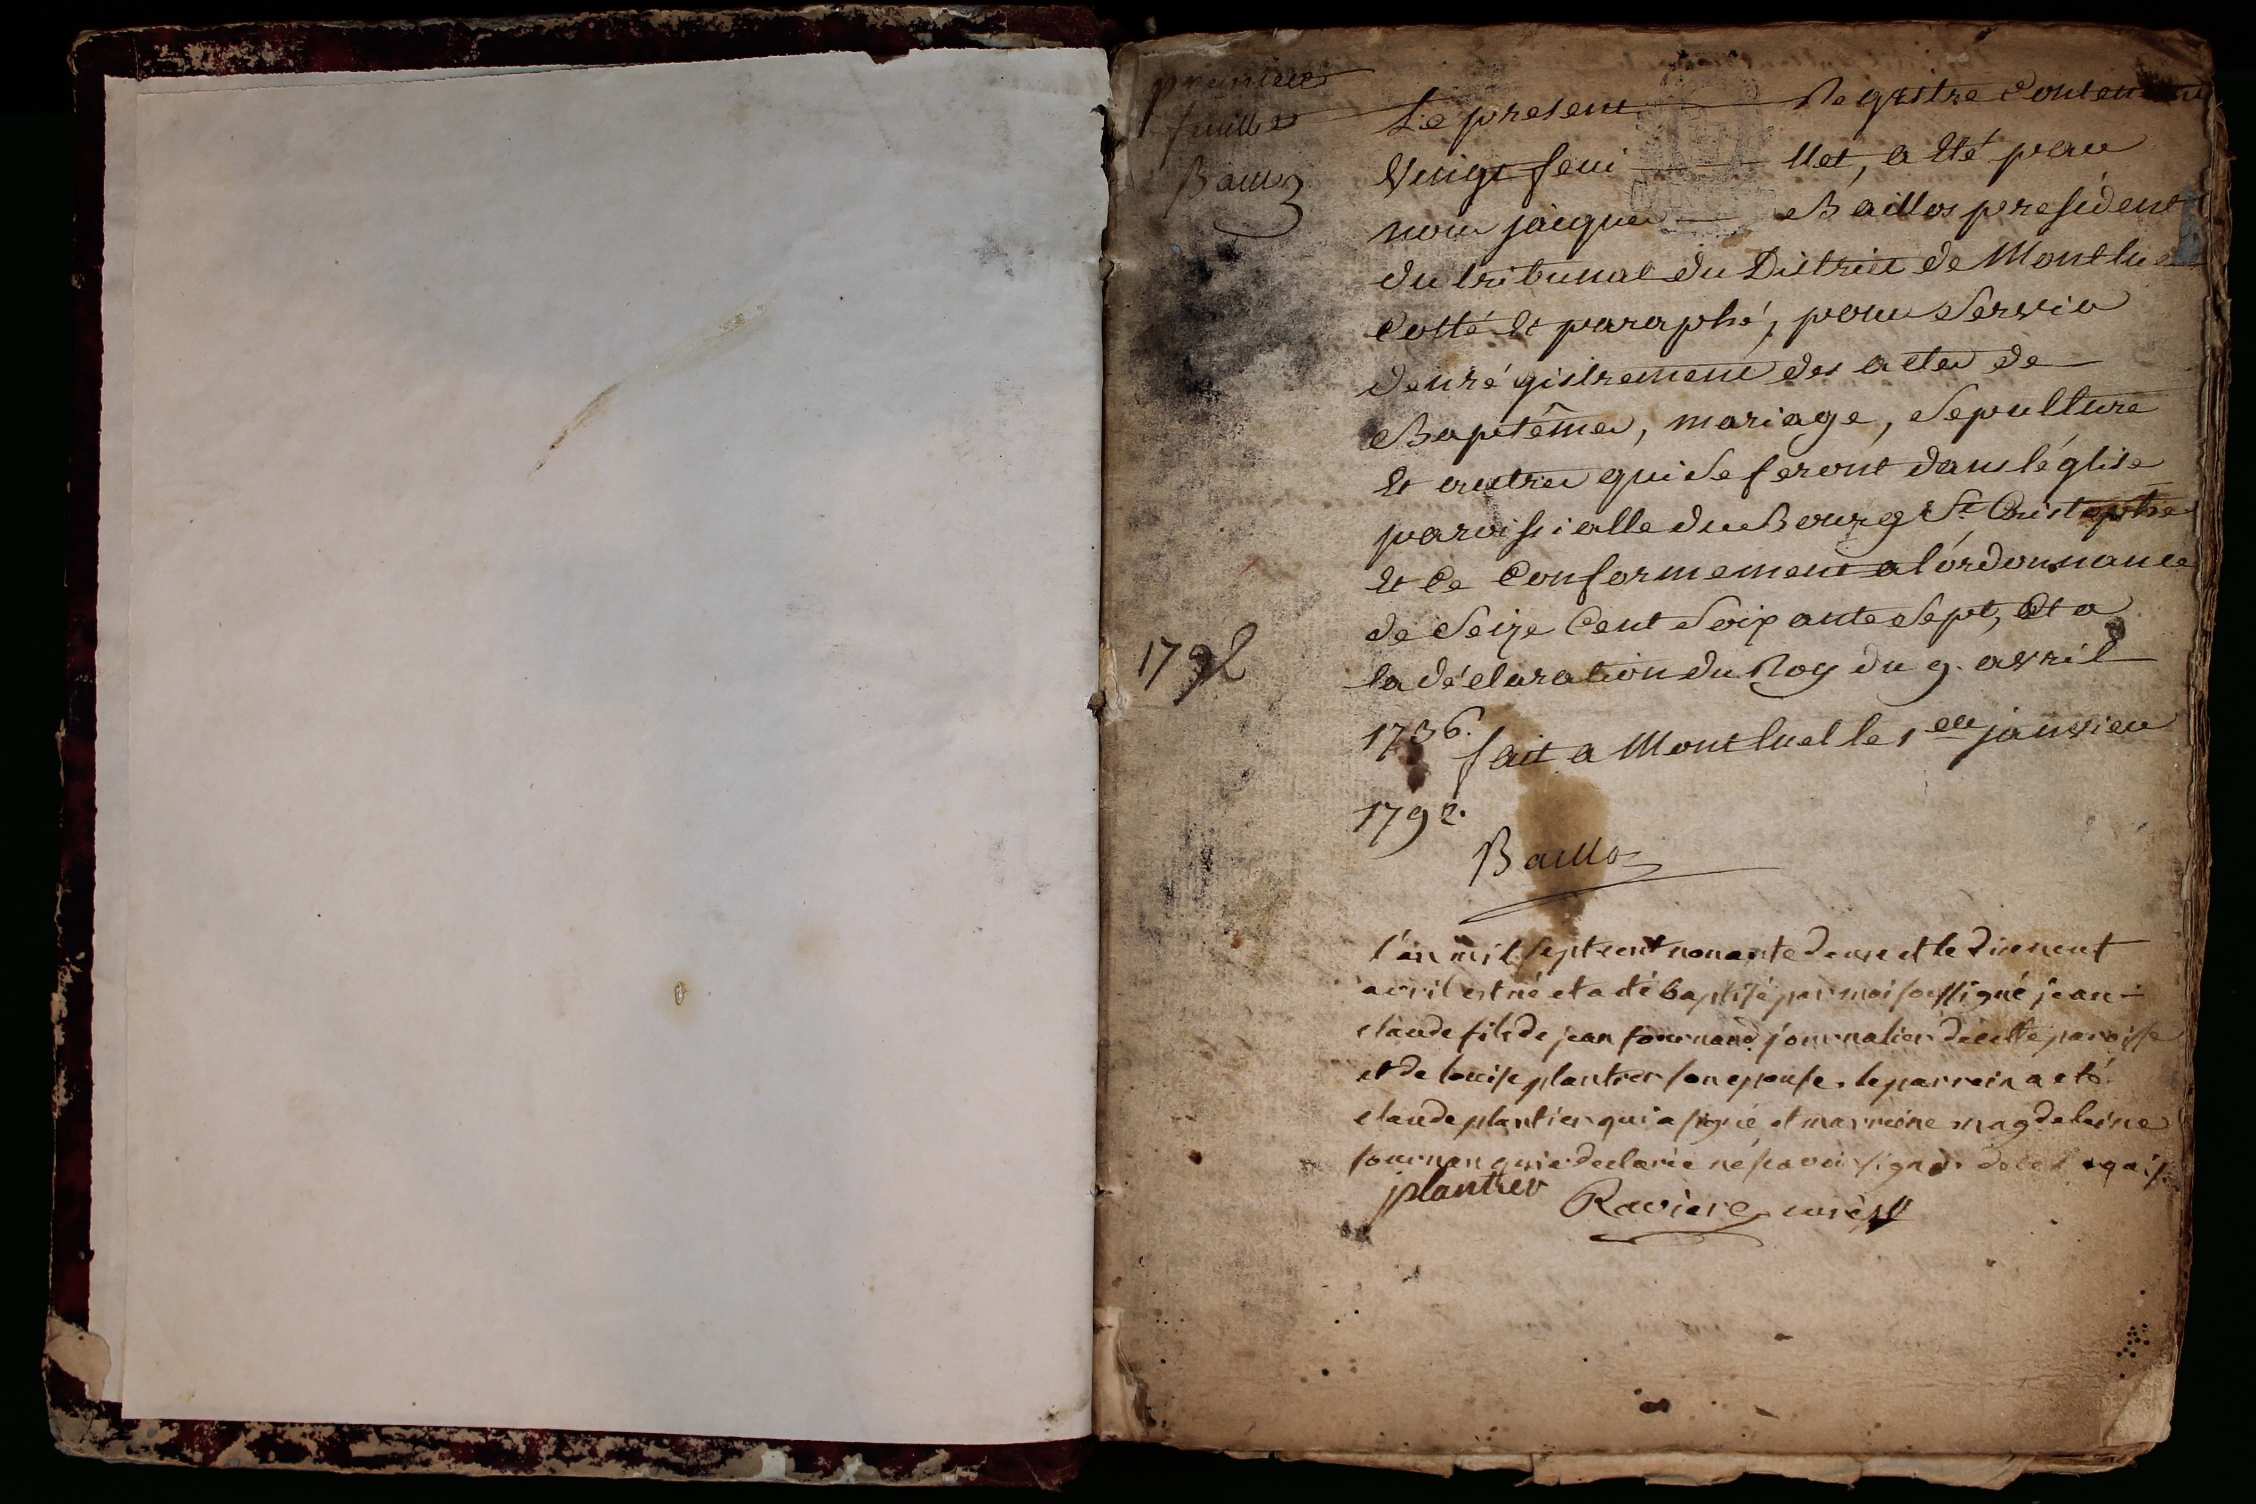 premiere
feuillet
Baillos
Le present Registre Contenant
Vingt feuillet, a Eté par
nous jacques Baillos president
du tribunal du District de Montluel
Cotté Et paraphé, pour Servir
denrégistrement des actes de
Baptêmes, mariage, Sepulture
Et autres qui Se feront dans l'église
paroissialle du Bourg St Cristophe
Et Ce Conformement a l'órdonnance
de Seize Cent Soixante Sept, Et a
la déclaration du Roy du 9. avril
1736.
fait a Montluel le 1er janvier
1792.
1792
Baillos
l'an mil sept cent nonante deux et le dixneuf
avril est né et a été baptisé par moi soussigné jean-
claude fils de jean fournand journalier de cette paroisse
et de louise plantier son epouse. le parrein a eté
claude plantier qui a signé et marreine magdeleine
fournan qui a declaré ne savoir signer de ce
plantier Ravier curé